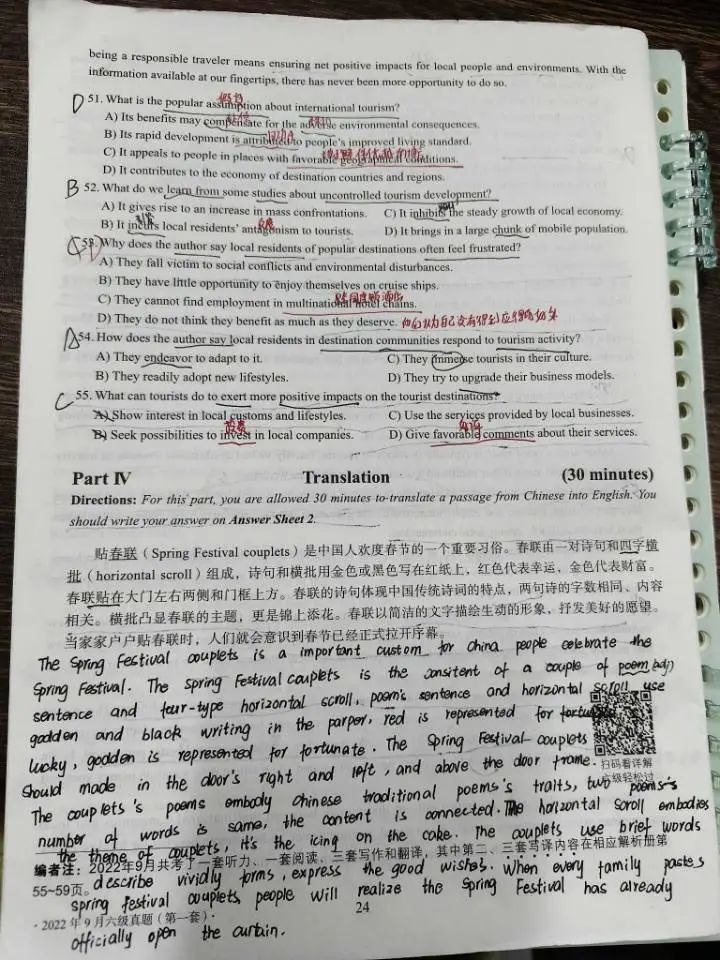 being a responsible traveler means ensuring net positive impacts for local people and environments. With the
information available at our fingertips, there has never been more opportunity to do so.
D 51. What is the popular assumption about international tourism?
A) Its benefits may compensate for the adverse environmental consequences.
B) Its rapid development is attributed to people's improved living standard.
C) It appeals to people in places with favorable geographical conditions.
D) It contributes to the economy of destination countries and regions.
B 52. What do we learn from some studies about uncontrolled tourism development?
A) It gives rise to an increase in mass confrontations. C) It inhibits the steady growth of local economy.
B) It incurs local residents' antagonism to tourists. D) It brings in a large chunk of mobile population.
53. Why does the author say local residents of popular destinations often feel frustrated?
A) They fall victim to social conflicts and environmental disturbances.
B) They have little opportunity to enjoy themselves on cruise ships.
C) They cannot find employment in multinational hotel chains.
D) They do not think they benefit as much as they deserve. 他们认为自己没有得到应得的好处
54. How does the author say local residents in destination communities respond to tourism activity?
A) They endeavor to adapt to it. C) They immerse tourists in their culture.
B) They readily adopt new lifestyles. D) They try to upgrade their business models.
C 55. What can tourists do to exert more positive impacts on the tourist destinations?
A) Show interest in local customs and lifestyles. C) Use the services provided by local businesses.
投资
B) Seek possibilities to invest in local companies. D) Give favorable comments about their services.
Part Ⅳ Translation (30 minutes)
Directions: For this part, you are allowed 30 minutes to translate a passage from Chinese into English. You
should write your answer on Answer Sheet 2.
贴春联（Spring Festival couplets）是中国人欢度春节的一个重要习俗。春联由一对诗句和四字横
批（horizontal scroll）组成，诗句和横批用金色或黑色写在红纸上，红色代表幸运，金色代表财富。
春联贴在大门左右两侧和门框上方。春联的诗句体现中国传统诗词的特点，两句诗的字数相同、内容
相关。横批凸显春联的主题，更是锦上添花。春联以简洁的文字描绘生动的形象，抒发美好的愿望。
当家家户户贴春联时，人们就会意识到春节已经正式拉开序幕。
The Spring Festival couplets is a important custom for china people celebrate the
Spring Festival. The Spring Festival couplets is the consitent of a couple of poem
sentence and four-type horizontal scroll, poem's sentence and horizontal scroll use
godden and black writing in the parper, red is represented for
lucky, godden is represented for fortunate. The Spring Festival couplets
扫码看详解
should made in the door's right and left, and above the door frame.
六级轻松过
The couplets's poems embody Chinese traditional poems's traits, two poems's
number of words is same, the content is connected. The horizontal scroll embodies
the theme of couplets, it's the icing on the cake. The couplets use brief words
编者注：2022年9月共考了一套听力、一套阅读、三套写作和翻译，其中第二、三套写译内容在相应解析册第
55~59页。
describe vividly forms, express the good wishes. When every family pastes
spring festival couplets, people will realize the Spring Festival has already
·2022年9月六级真题（第一套）· 24
officially open the curtain.